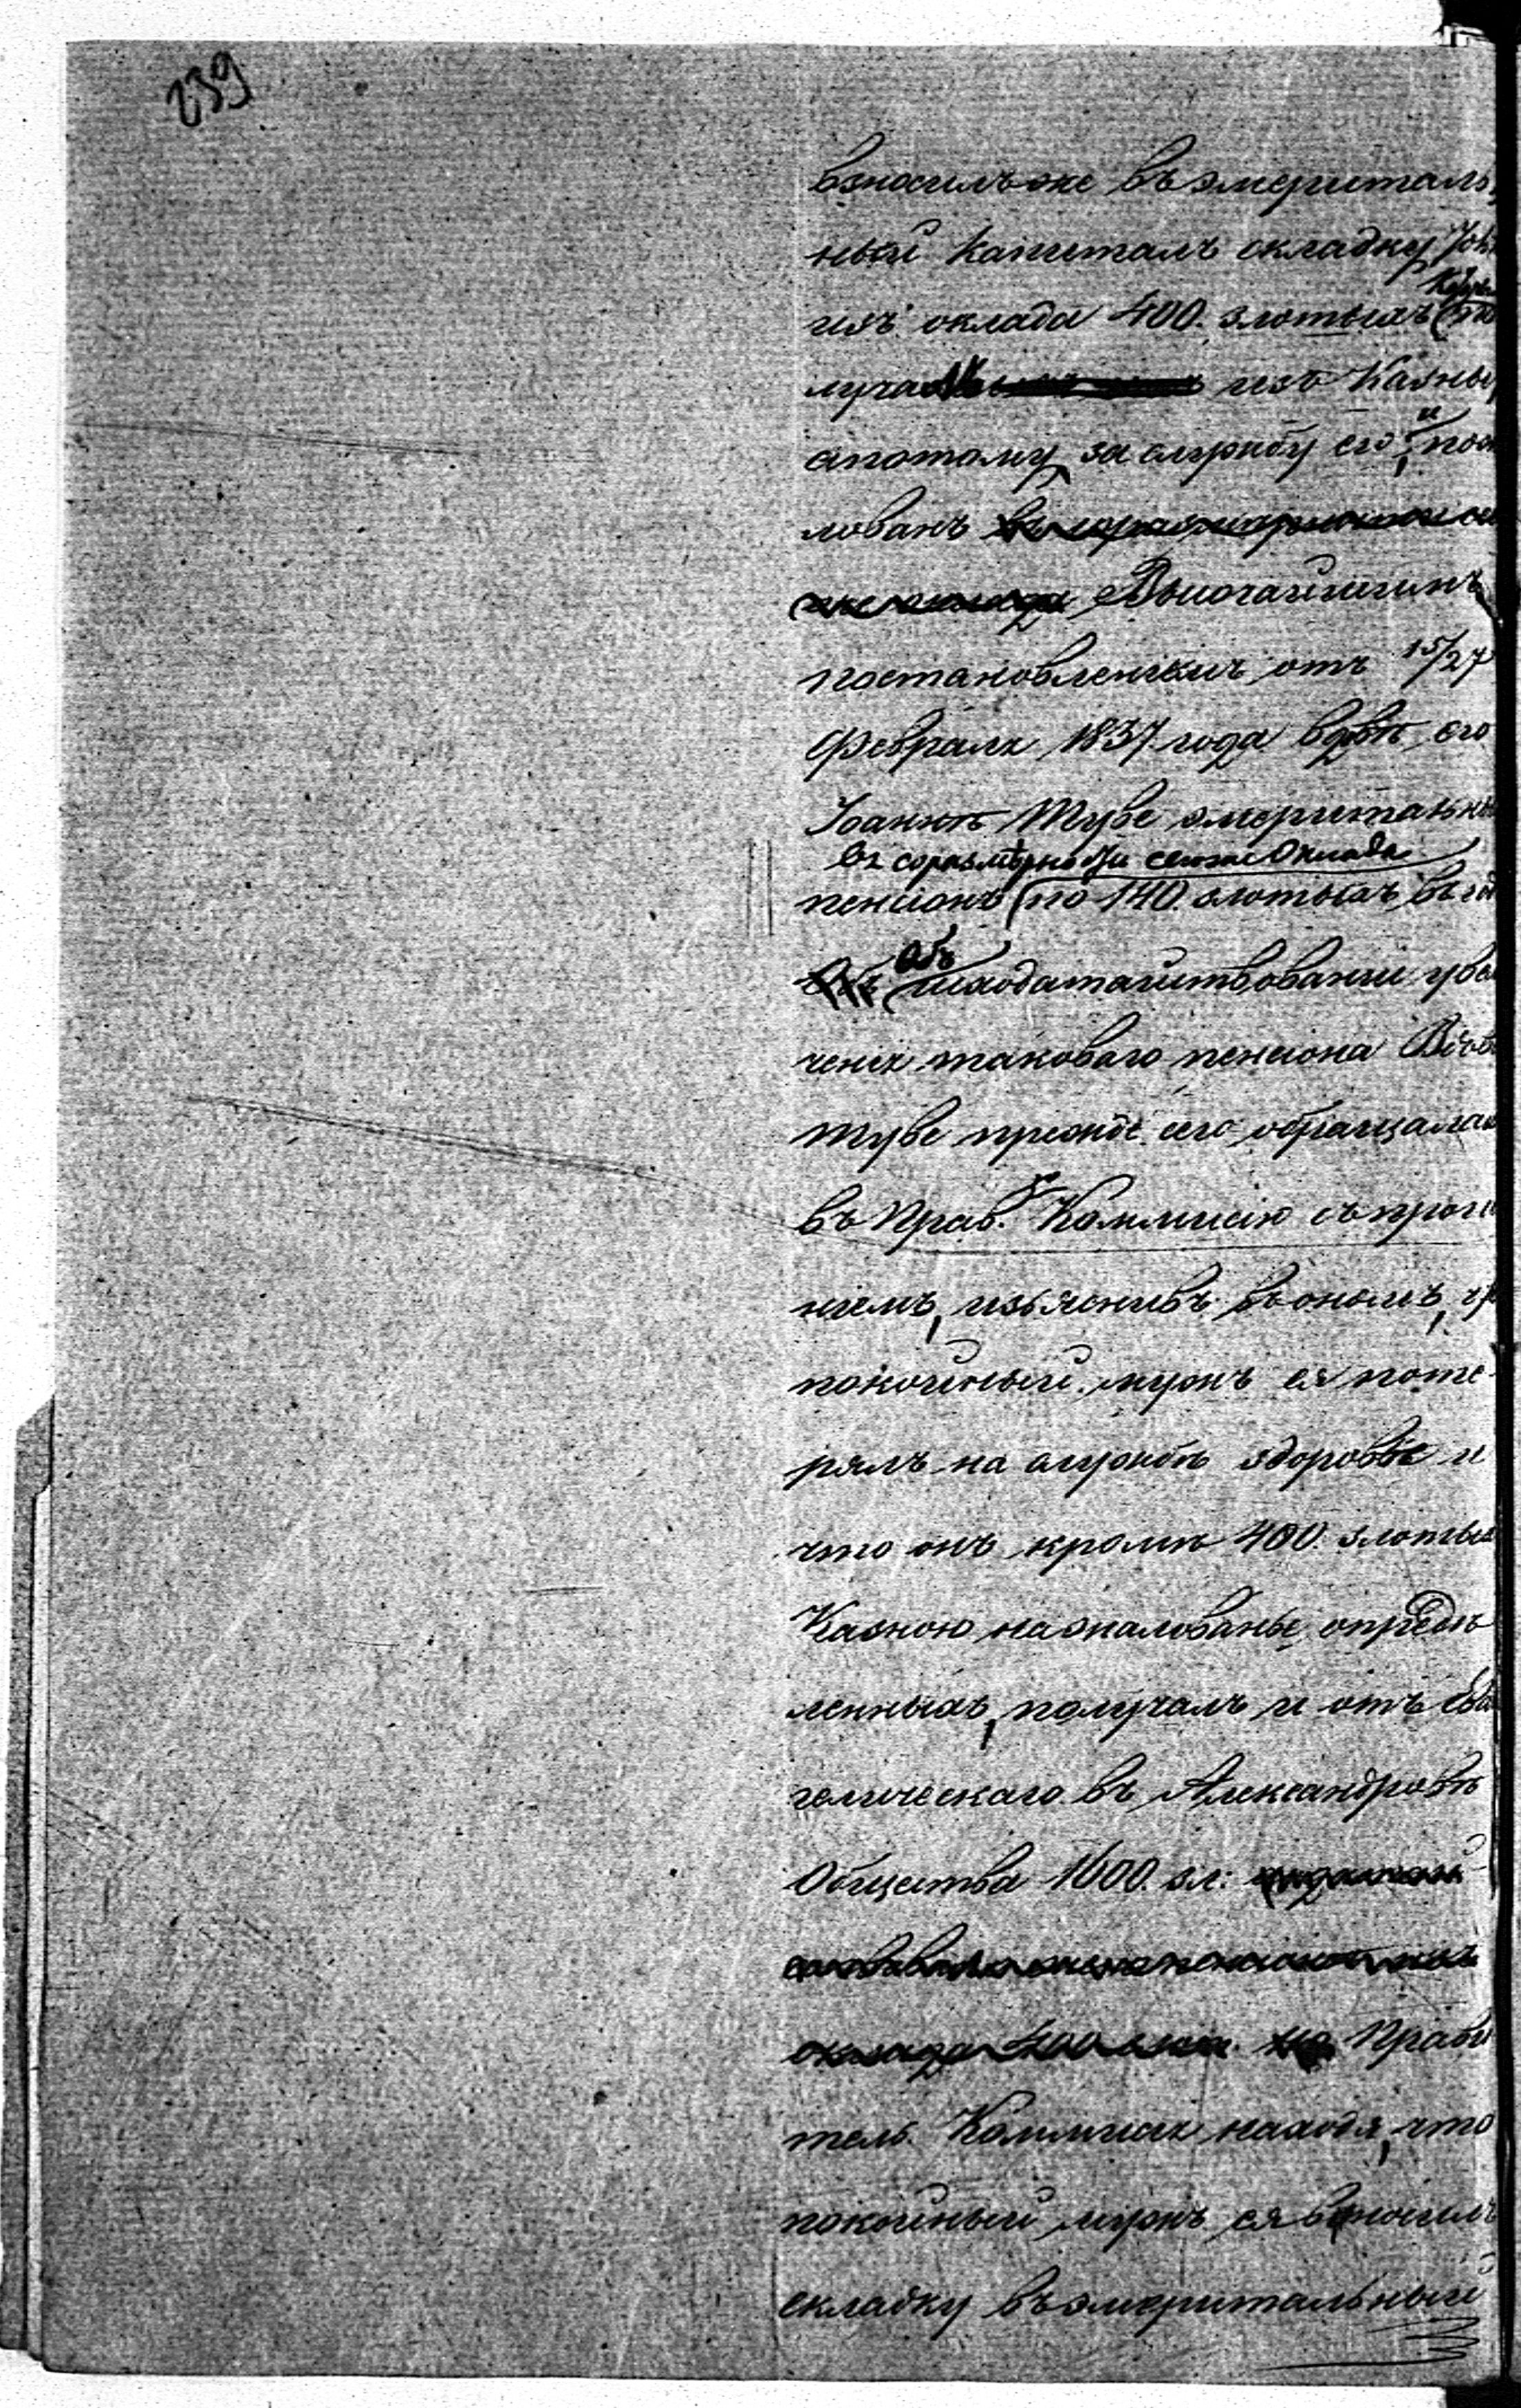 239
взносилъ же въ эмериталь-
ный капиталъ складку
изъ оклада 400. злотыхъ
луча изъ Казны
а потому за службу его и
лованъ
Высочайшимъ
постановленіемъ отъ 15/27
Февраля 1837 года вдовѣ его
Іоаннѣ Туве эмеритальны
въ соразмѣрности сего же Оклада
пенсіонъ по 140. злотыхъ въ
Объ исходатайствованіи уве
ченія таковаго пенсіона Вдов
Туве прежде сего обращалась
въ Прав. Коммисію съ прош
ніемъ, изъяснивъ въ ономъ,
покойный мужъ ея поте-
рялъ на службѣ здоровье и
что онъ кромѣ 400. злотых
Казною на жалованье опредѣ
ленныхъ, получалъ и отъ Еван
гелическаго въ Александровѣ
Общества 1600. зл:
оклада 400 Прави
тель. Коммисія находя, что
покойный мужъ ея вносилъ
складку въ эмеритальный